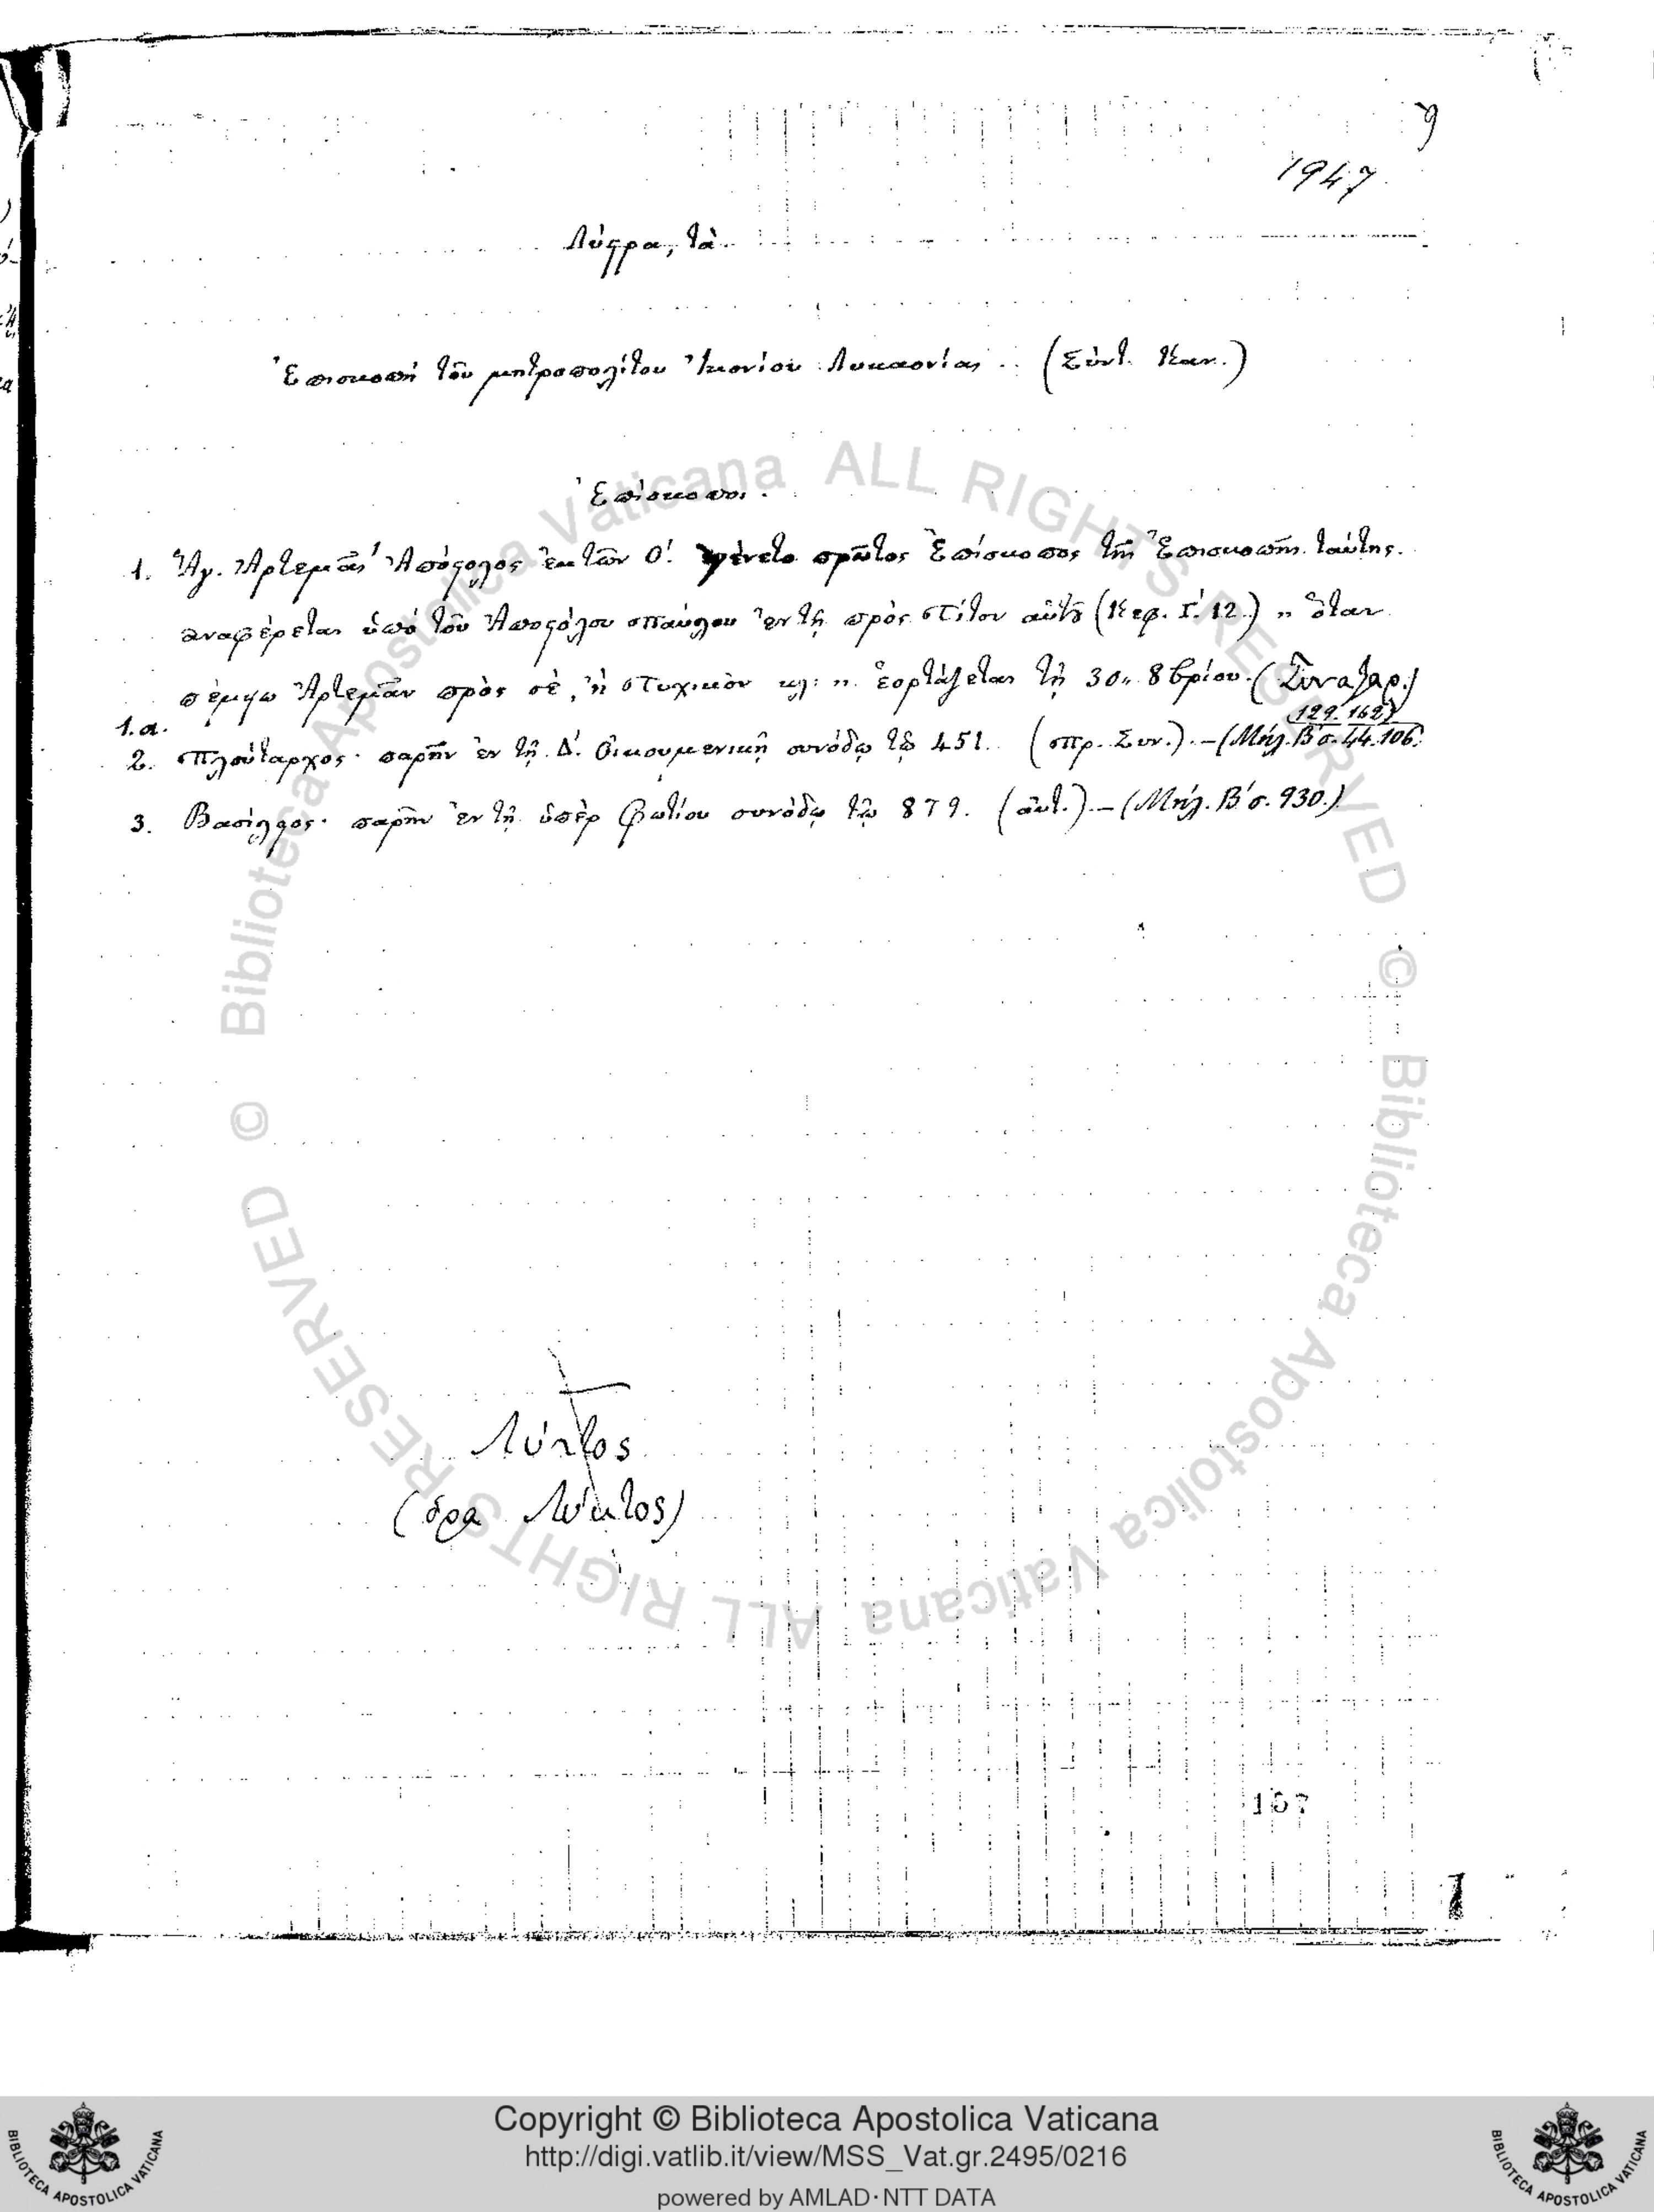 9
1947
Λύστρα, τὰ
Ἐπισκοπὴ τοῦ μητροπολίτου Ἰκονίου Λυκαονίας . (Σύντ. Καν.)
Ἐπίσκοποι.
1. Ἅγ. Ἀρτεμᾶς Ἀπόστολος ἐκ τῶν Ο΄. γένετο πρῶτος Ἐπίσκοπος τῆς Ἐπισκοπῆς ταύτης.
ἀναφέρεται ὑπὸ τοῦ Ἀποστόλου Παύλου ἐν τῇ πρὸς Τίτον αὐτοῦ (Κεφ. Γ΄ 12.) „ ὅταν
πέμψω Ἀρτεμᾶν πρὸς σὲ, ἢ Τυχικὸν κλ: „ ἑορτάζεται τῇ 30ῃ 8βρίου. (Συναξαρ.)
1.α. (129. 162)
2. Πλούταρχος · παρῆν ἐν τῇ Δ΄. Οἰκουμενικῇ συνόδῳ τῷ 451. (Πρ. Συν.). – (Μήλ. Β΄ σ. 44. 106.
3. Βασίλειος · παρῆν ἐν τῇ ὑπὲρ Φωτίου συνόδῳ τῷ 879. (αὐτ.). – (Μήλ. Β΄ σ. 930.)
Λύττος
(ὅρα Λύκτος)
167
© Biblioteca Apostolica Vaticana ALL RIGHTS RESERVED © Biblioteca Apostolica Vaticana ALL RIGHTS RESERVED
Copyright © Biblioteca Apostolica Vaticana
http://digi.vatlib.it/view/MSS_Vat.gr.2495/0216
powered by AMLAD·NTT DATA
BIBLIOTECA APOSTOLICA VATICANA
BIBLIOTECA APOSTOLICA VATICANA